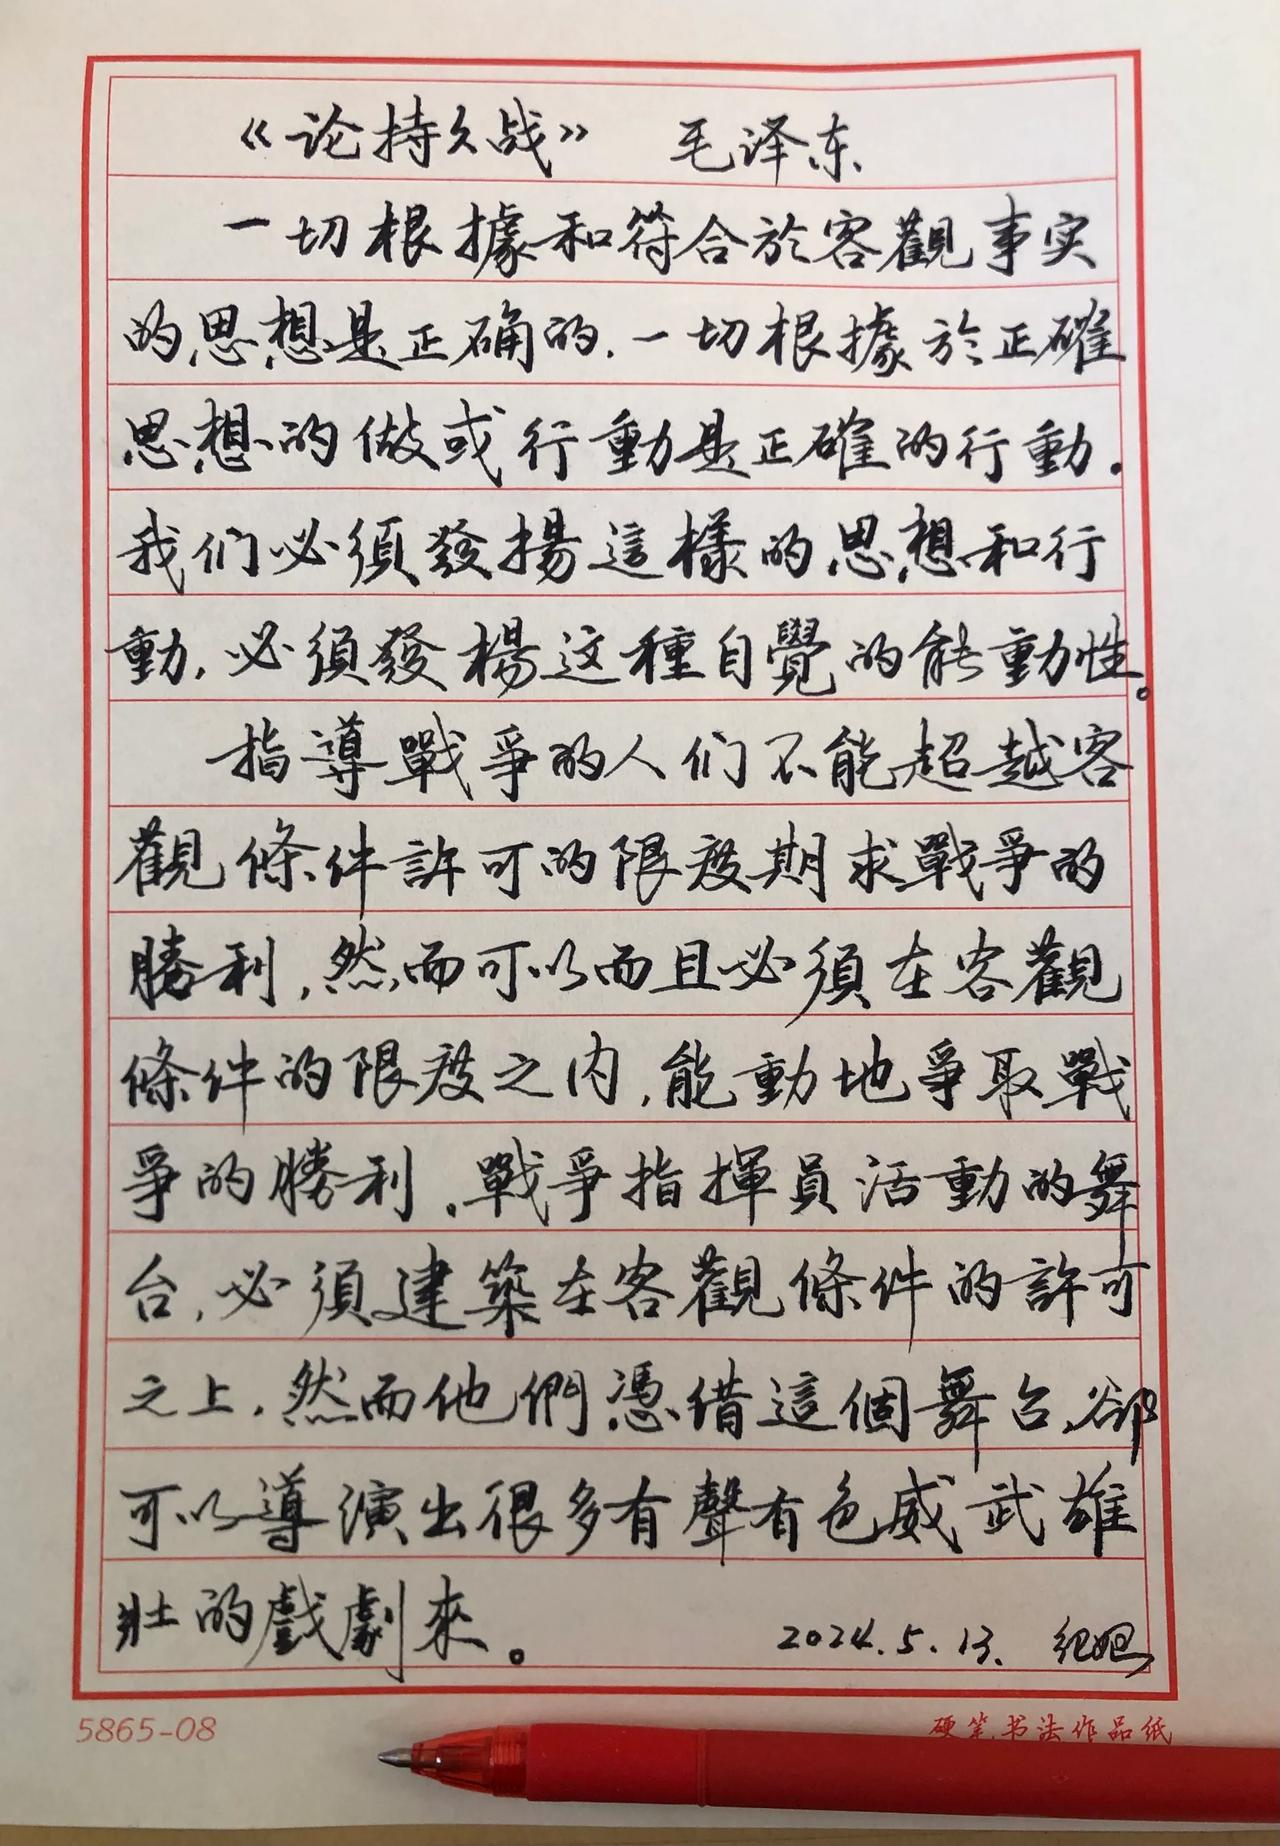 《论持久战》 毛泽东
一切根據和符合於客觀事实
的思想是正确的，一切根據於正確
思想的做或行動是正確的行動．
我们必須發揚這樣的思想和行
動，必須發楊这種自覺的能動性。
指導戰爭的人们不能超越客
觀條件許可的限度期求戰爭的
勝利，然而可以而且必須在客觀
條件的限度之内，能動地爭取戰
爭的勝利．戰爭指揮員活動的舞
台，必須建築在客觀條件的許可
之上，然而他們憑借這個舞台，卻
可以導演出很多有聲有色威武雄
壯的戲劇來。
2024.5.13.
5865-08
硬笔书法作品纸